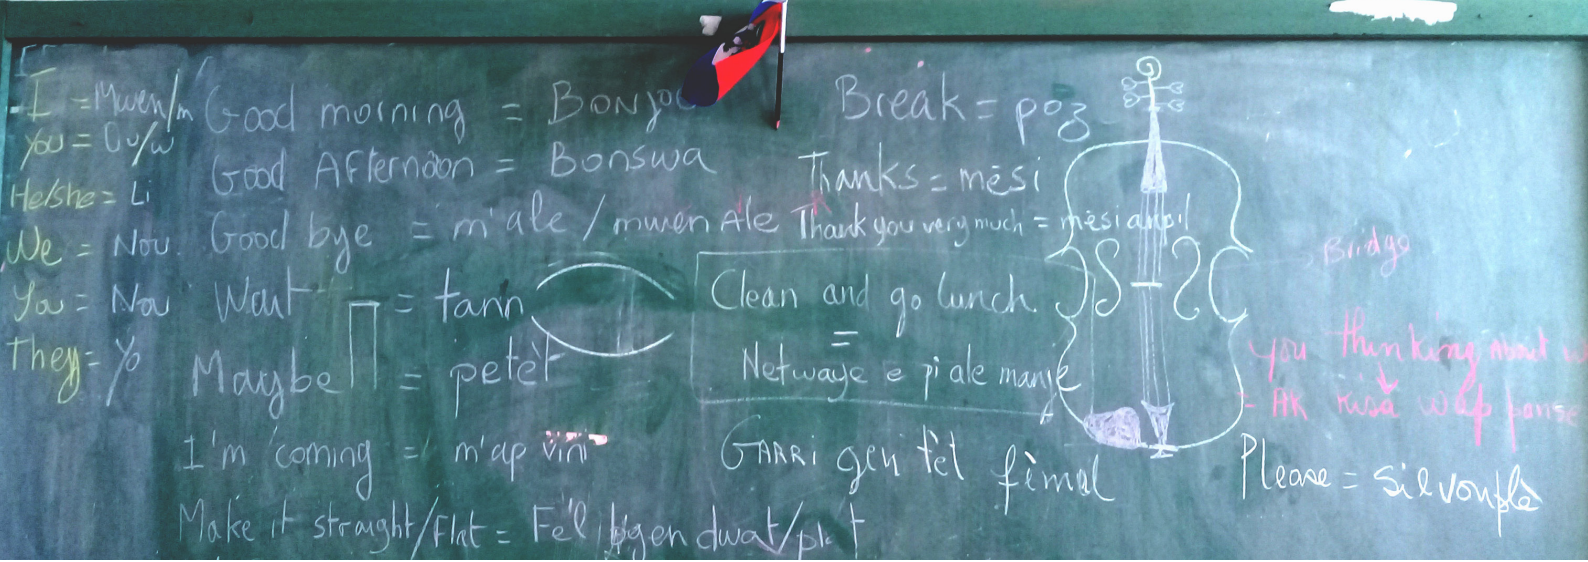 I = Mwen/m
You = Ou/w
He/she = Li
We = Nou
You = Nou
They = Yo
Good morning = Bonjou
Good Afternoon = Bonswa
Good bye = m'ale / mwen Ale
Wait = tann
Maybe = petèt
I'm coming = m'ap vini
Make it straight/Flat = Fè'l gen dwat/plat
Break = poz
Thanks = mèsi
Thank you very much = mèsi anpil
Clean and go lunch
=
Netwaye e pi ale manje
GARRi gen tèt fèmal
Bridge
You thinking About
- AK Kisa wap panse
Please = silvouplè